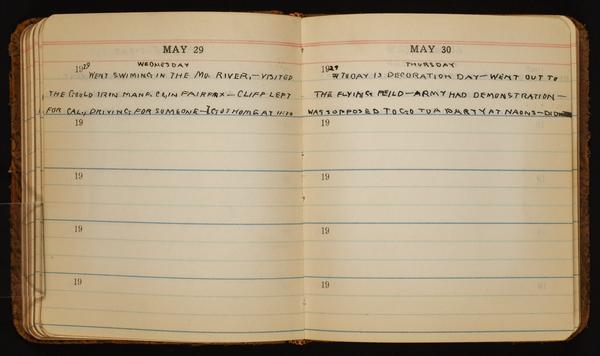 MAY 29
WEDNESDAY
1929
WENT SWIMING IN THE MO. RIVER,—VISITED
THE GOULD IRIN MANF. CO, IN FAIRFAX— CLIFF LEFT
FOR CAL, DRIVING FOR SOMEONE—I GOT HOME AT 11:30
19
19
19
19
MAY 30
THURSDAY
1929
TODAY IS DECORATION DAY—WENT OUT TO
THE FLYING FEILD—ARMY HAD DEMONSTRATION—
WAS SOPPOSED TO GO TO A PARTY AT NAONS—DID
19
19
19
19